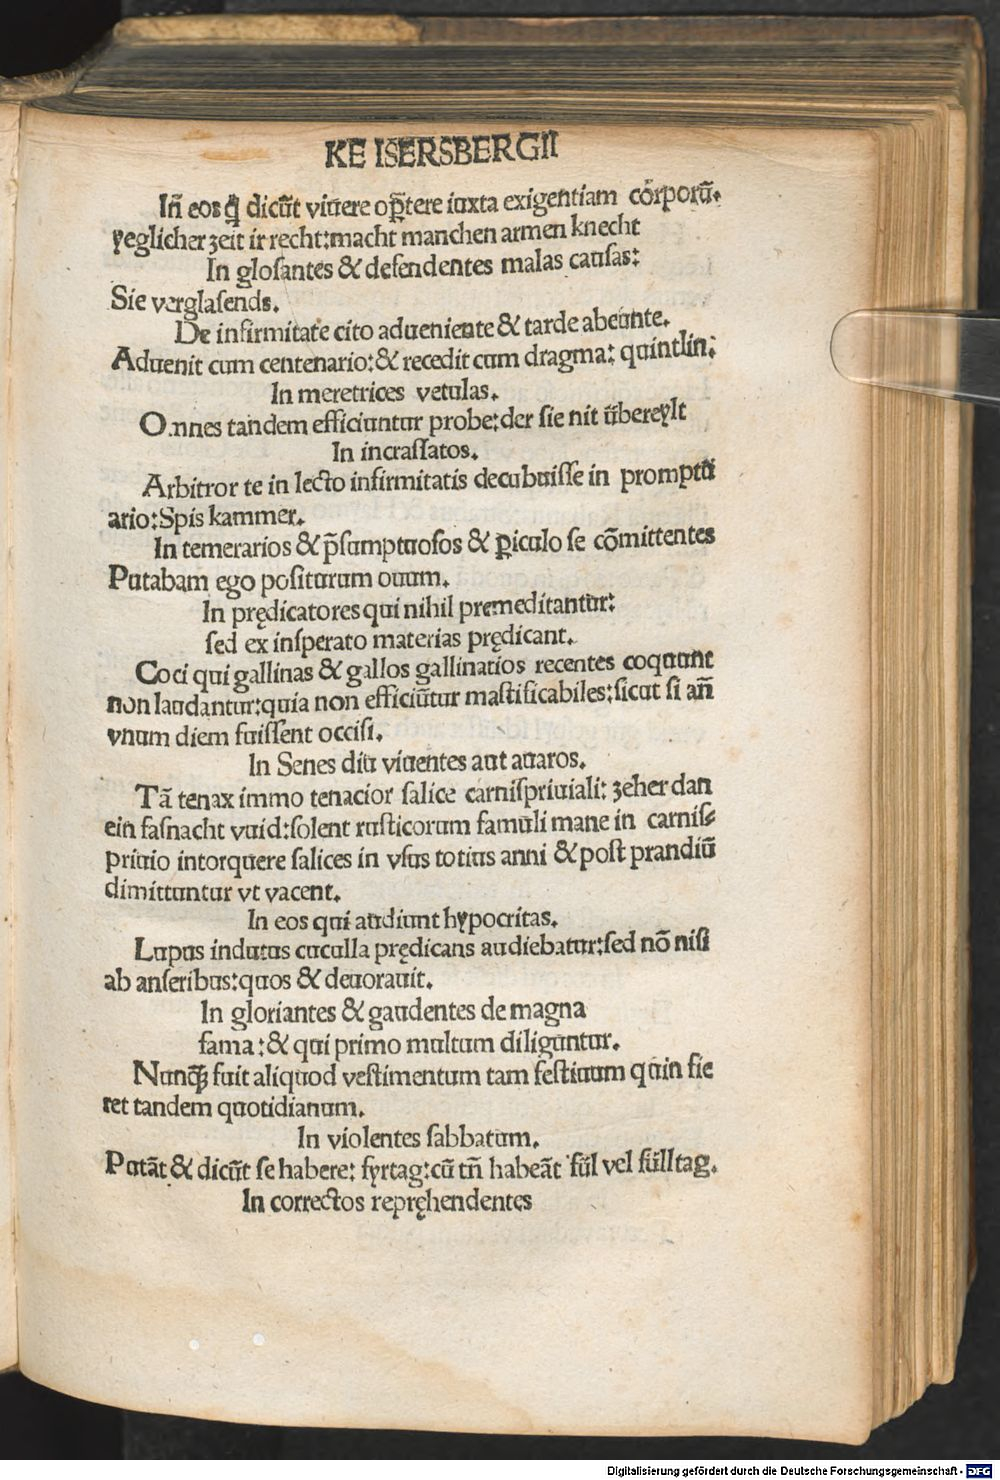 KE ISERSBERGII
In̄ eos q̄ dicūt viuere op̱̄tere iuxta exigentiam corporū.
yeglicher zeit ir recht:macht manchen armen knecht
In glosantes & defendentes malas causas:
Sie verglasends.
De infirmitate cito adueniente & tarde abeunte.
Aduenit cum centenario:& recedit cum dragma: quintlin:
In meretrices vetulas.
Omnes tandem efficiuntur probe:der sie nit übereylt
In incrassatos.
Arbitror te in lecto infirmitatis decubuisse in promptu
ario:Spis kammer.
In temerarios & p̄sumptuosos & ꝑiculo se cōmittentes
Putabam ego positurum ouum.
In prędicatores qui nihil premeditantur:
sed ex insperato materias prędicant.
Coci qui gallinas & gallos gallinatios recentes coquunt
non laudantur:quia non efficiūtur mastificabiles:sicut si an̄
vnum diem fuissent occisi.
In Senes diu viuentes aut auaros.
Tā tenax immo tenacior salice carnispriuiali: zeher dan
ein fasnacht vuid:solent rusticorum famuli mane in carnis⸗
priuio intorquere salices in vsus totius anni & post prandiū
dimittuntur vt vacent.
In eos qui audiunt hypocritas.
Lupus indutus cuculla prędicans audiebatur:sed nō nisi
ab anseribus:quos & deuorauit.
In gloriantes & gaudentes de magna
fama:& qui primo multum diliguntur.
Nunqꝫ fuit aliquod vestimentum tam festiuum quin fie
ret tandem quotidianum.
In violentes sabbatum.
Putāt & dicūt se habere: fyrtag:cū tn̄ habeāt fül vel fülltag.
In correctos repręhendentes
Digitalisierung gefördert durch die Deutsche Forschungsgemeinschaft - DFG